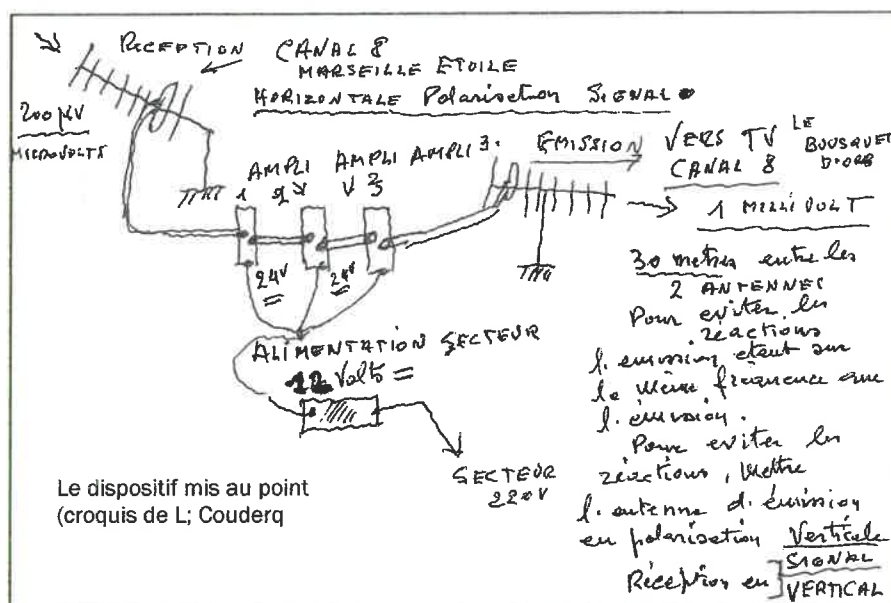 RECEPTION
CANAL 8
MARSEILLE ETOILE
HORIZONTALE Polarisation SIGNAL
200 µV
MICROVOLTS
AMPLI AMPLI AMPLI 3.
1 2 3
EMISSION
VERS TV LE BOUSQUET D'ORB
CANAL 8
1 MILLIVOLT
24V 24V
ALIMENTATION SECTEUR
12 Volts =
SECTEUR
220V
30 metres entre les
2 ANTENNES
Pour eviter les
réactions
l'emission etant sur
la même fréquence que
l'émission.
Pour eviter les
réactions, Mettre
l'antenne d'émission
en polarisation Verticale
Réception en SIGNAL
VERTICAL
Le dispositif mis au point
(croquis de L; Couderq